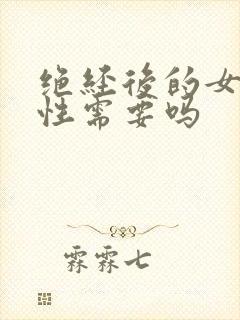 绝经后的女
性需要吗
霖霖七